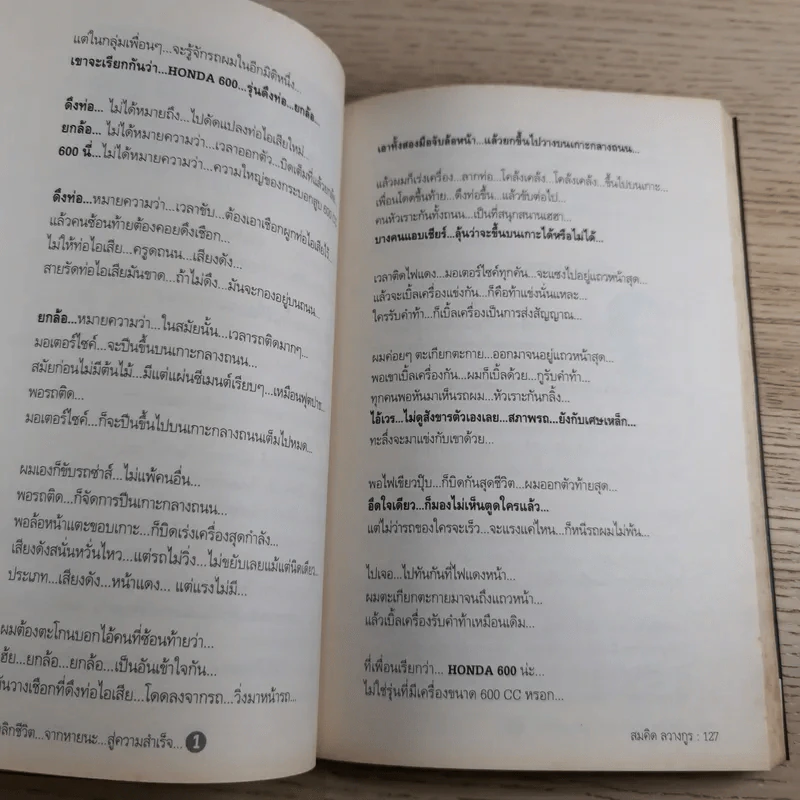 แต่ในกลุ่มเพื่อนๆ...จะรู้จักรถผมในอีกมิติหนึ่ง...
เขาจะเรียกกันว่า...HONDA 600...รุ่นดึงท่อ...ยกล้อ...
ดึงท่อ... ไม่ได้หมายถึง...ไปดัดแปลงท่อไอเสียใหม่...
ยกล้อ... ไม่ได้หมายความว่า...เวลาออกตัว...บิดเต็มที่แล้วยกล้อ
600 นี่...ไม่ได้หมายความว่า...ความใหญ่ของกระบอกสูบ 600 CC
ดึงท่อ...หมายความว่า...เวลาขับ...ต้องเอาเชือกผูกท่อไอเสียไว้...
แล้วคนซ้อนท้ายต้องคอยดึงเชือก...
ไม่ให้ท่อไอเสีย...ครูดถนน...เสียงดัง...
สายรัดท่อไอเสียมันขาด...ถ้าไม่ดึง...มันจะกองอยู่บนถนน...
ยกล้อ...หมายความว่า...ในสมัยนั้น...เวลารถติดมากๆ...
มอเตอร์ไซค์...จะปีนขึ้นบนเกาะกลางถนน...
สมัยก่อนไม่มีต้นไม้...มีแต่แผ่นซีเมนต์เรียบๆ...เหมือนฟุตบาท...
พอรถติด...
มอเตอร์ไซค์...ก็จะปีนขึ้นไปบนเกาะกลางถนนเต็มไปหมด...
ผมเองก็ขับรถซ่าส์...ไม่แพ้คนอื่น...
พอรถติด...ก็จัดการปีนเกาะกลางถนน...
พอล้อหน้าแตะขอบเกาะ...ก็บิดเร่งเครื่องสุดกำลัง...
เสียงดังสนั่นหวั่นไหว...แต่รถไม่วิ่ง...ไม่ขยับเลยแม้แต่นิดเดียว...
ประเภท...เสียงดัง...หน้าแดง... แต่แรงไม่มี...
ผมต้องตะโกนบอกไอ้คนที่ซ้อนท้ายว่า...
เฮ้ย...ยกล้อ...ยกล้อ...เป็นอันเข้าใจกัน...
มันวางเชือกที่ดึงท่อไอเสีย...โดดลงจากรถ...วิ่งมาหน้ารถ...
ลิกชีวิต...จากหายนะ...สู่ความสำเร็จ... 1
เอาทั้งสองมือจับล้อหน้า...แล้วยกขึ้นไปวางบนเกาะกลางถนน...
แล้วผมก็เร่งเครื่อง...ลากท่อ...โคล้งเคล้ง...โคล้งเคล้ง...ขึ้นไปบนเกาะ...
เพื่อนโดดขึ้นท้าย...ดึงท่อขึ้น...แล้วขับต่อไป...
คนหัวเราะกันทั้งถนน...เป็นที่สนุกสนานเฮฮา...
บางคนแอบเชียร์...ลุ้นว่าจะขึ้นบนเกาะได้หรือไม่ได้...
เวลาติดไฟแดง...มอเตอร์ไซค์ทุกคัน...จะแซงไปอยู่แถวหน้าสุด...
แล้วจะเบิ้ลเครื่องแข่งกัน...ก็คือท้าแข่งนั่นแหละ...
ใครรับคำท้า...ก็เบิ้ลเครื่องเป็นการส่งสัญญาณ...
ผมค่อยๆ ตะเกียกตะกาย...ออกมาจนอยู่แถวหน้าสุด...
พอเขาเบิ้ลเครื่องกัน...ผมก็เบิ้ลด้วย...กูรับคำท้า...
ทุกคนพอหันมาเห็นรถผม...หัวเราะกันกลิ้ง...
ไอ้เวร...ไม่ดูสังขารตัวเองเลย...สภาพรถ...ยังกับเศษเหล็ก...
ทะลึ่งจะมาแข่งกับเขาด้วย...
พอไฟเขียวปุ๊บ...ก็บิดกันสุดชีวิต...ผมออกตัวท้ายสุด...
อึดใจเดียว...ก็มองไม่เห็นตูดใครแล้ว...
แต่ไม่ว่ารถของใครจะเร็ว...จะแรงแค่ไหน...ก็หนีรถผมไม่พ้น...
ไปเจอ...ไปทันกันที่ไฟแดงหน้า...
ผมตะเกียกตะกายมาจนถึงแถวหน้า...
แล้วเบิ้ลเครื่องรับคำท้าเหมือนเดิม...
ที่เพื่อนเรียกว่า... HONDA 600 น่ะ...
ไม่ใช่รุ่นที่มีเครื่องขนาด 600 CC หรอก...
สมคิด ลวางกูร : 127